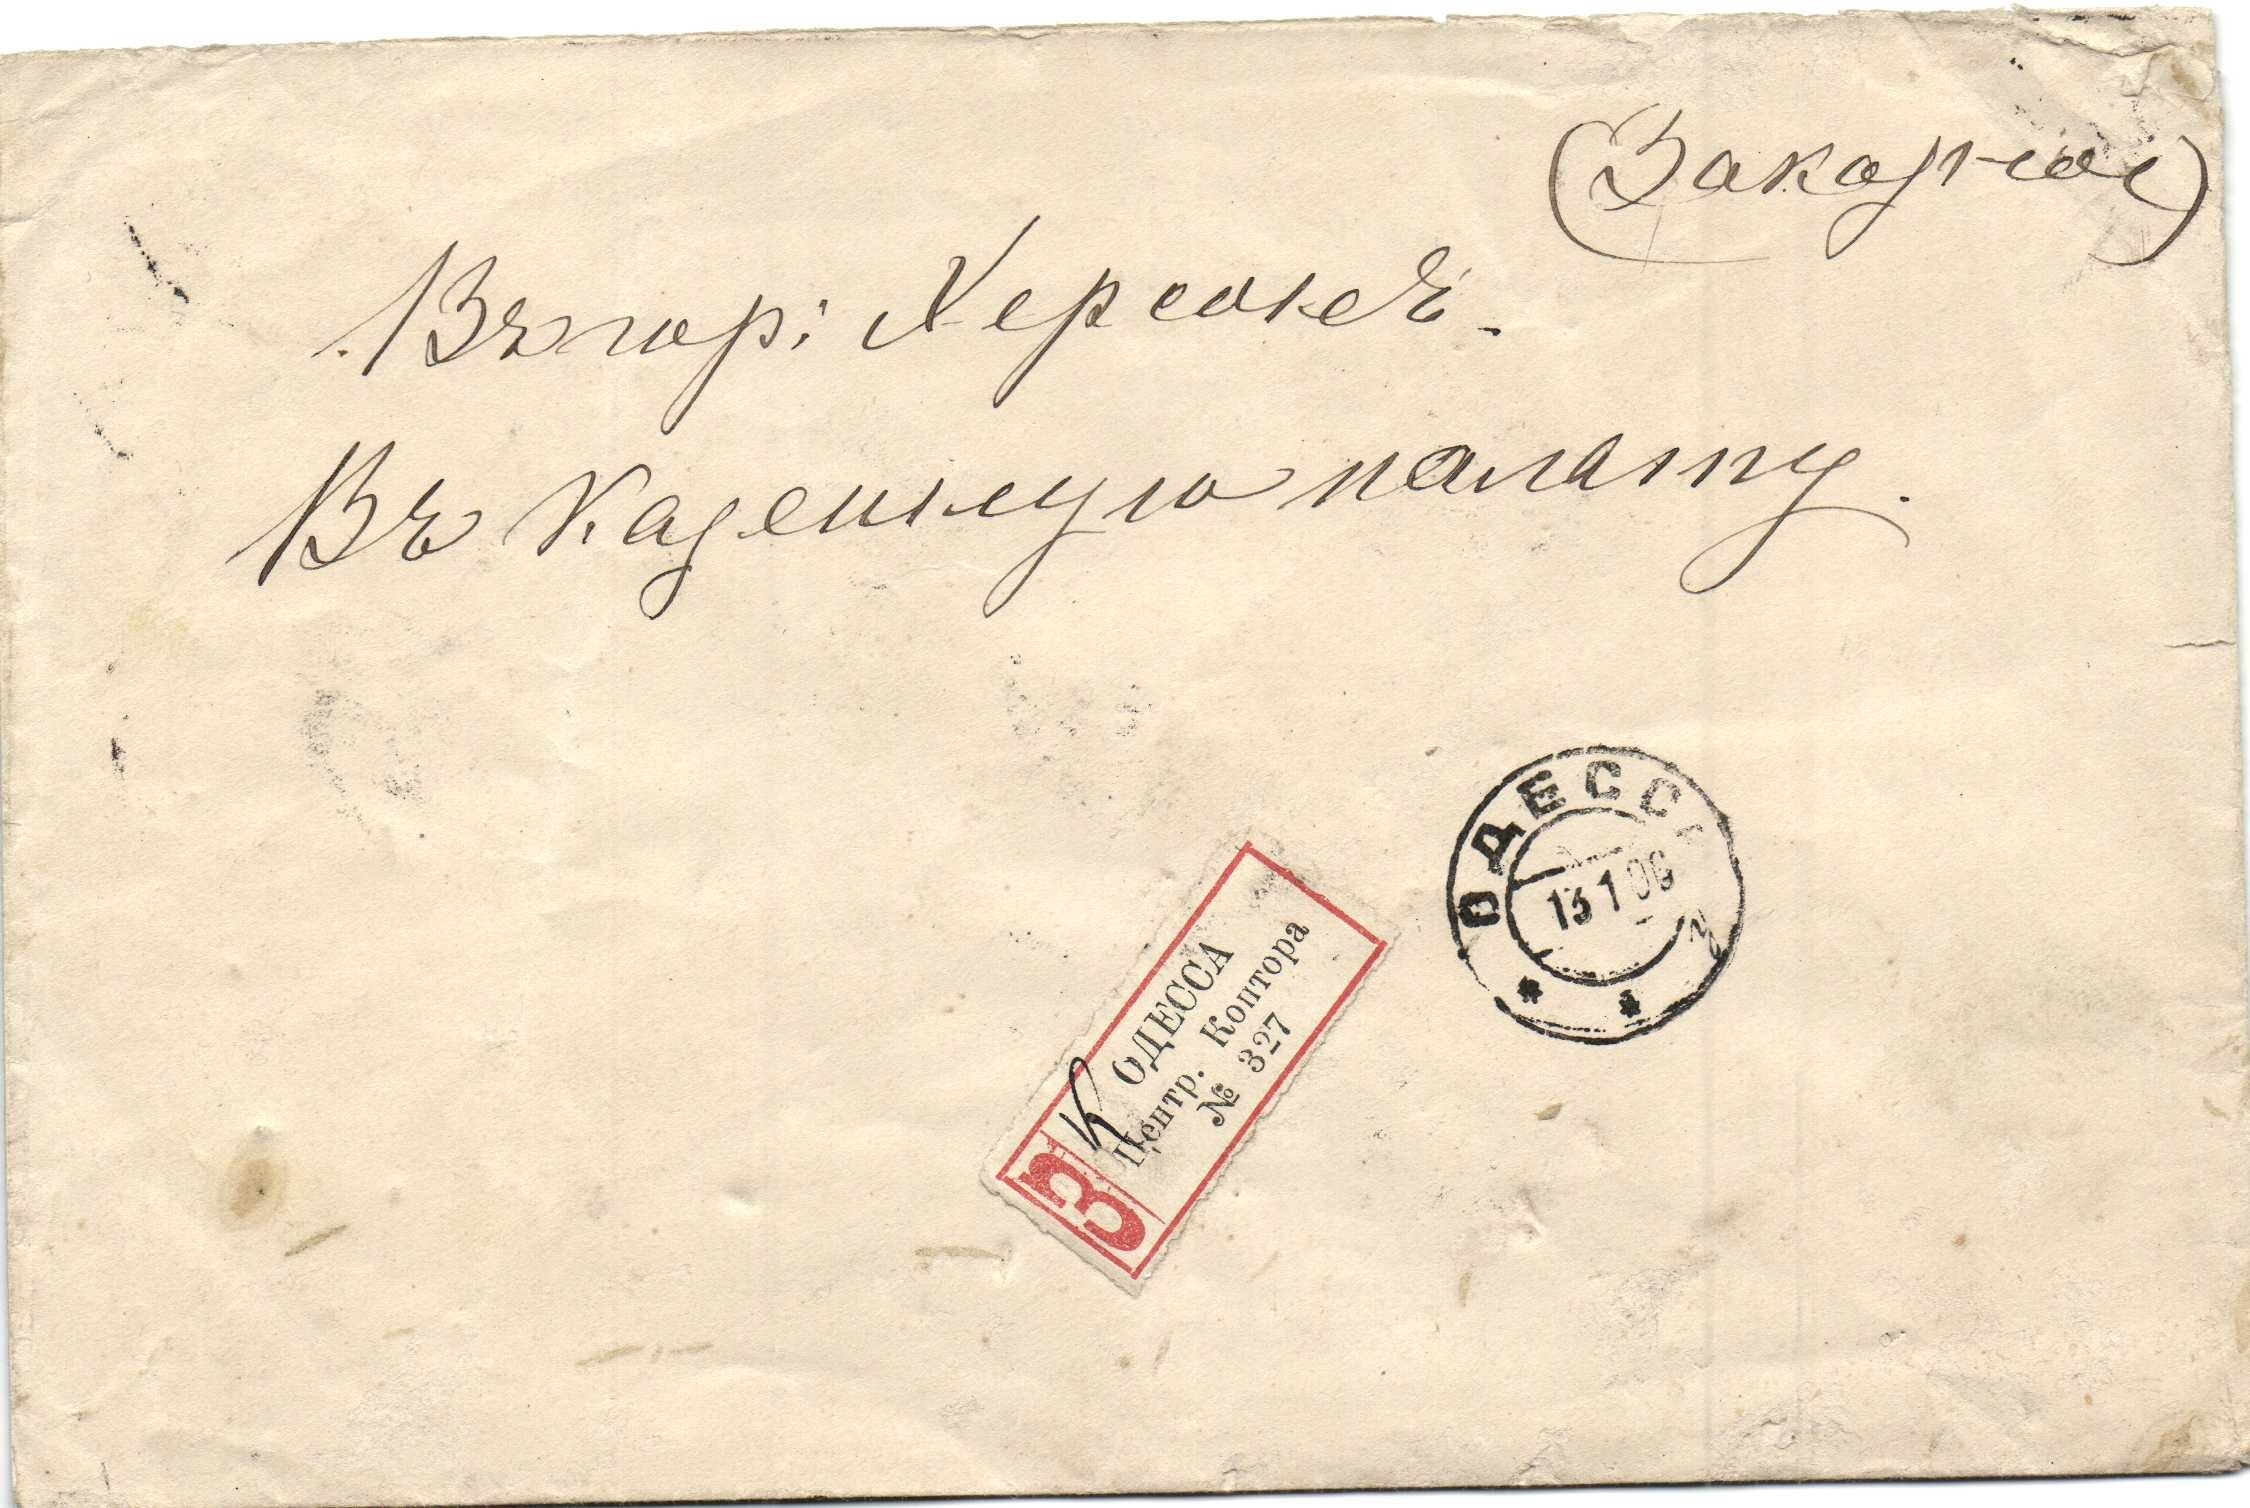 (Заказное)
Въ гор: Херсонѣ.
Въ Казенную палату.
ОДЕССА
13 1 06
З
К
ОДЕССА
Центр. Контора
№ 327